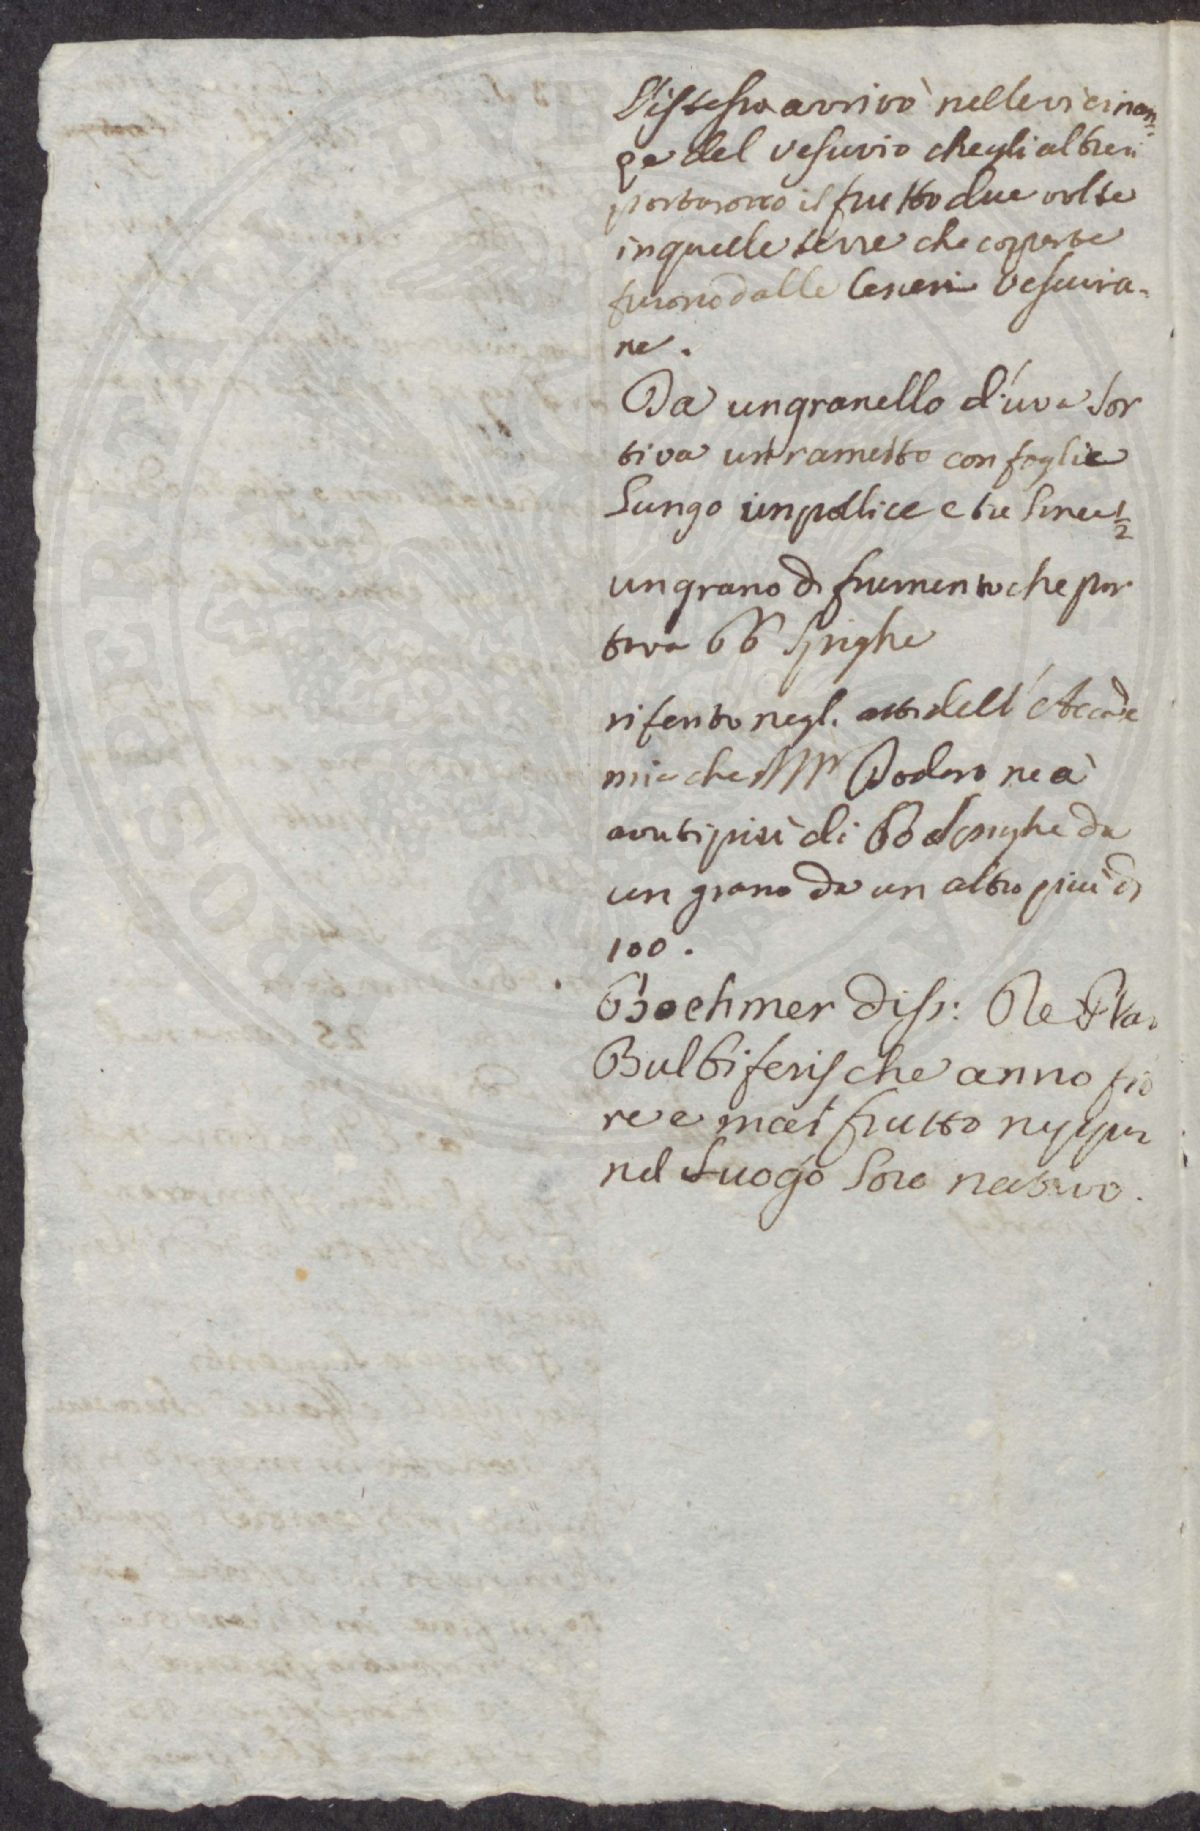 L'istesso arrivò nelle vicinan=
ze del Vesuvio che gli alberi
portarono il frutto due volte
in quelle terre che coperte
furono dalle Ceneri Vesuvia=
ne.
Da un granello d'uva sor
tiva un rametto con foglie
lungo un pollice e tre linee 1/2
un grano di frumento che por
tava 66 spighe
riferito negl. atti dell'Accade
mia che Dodaro ne à
avuti più di 60 spighe da
un grano da un altro più di
100.
Boehmer diss: De Plan
Bulbiferis che anno fio
re e mai frutto neppur
nel luogo loro nativo.